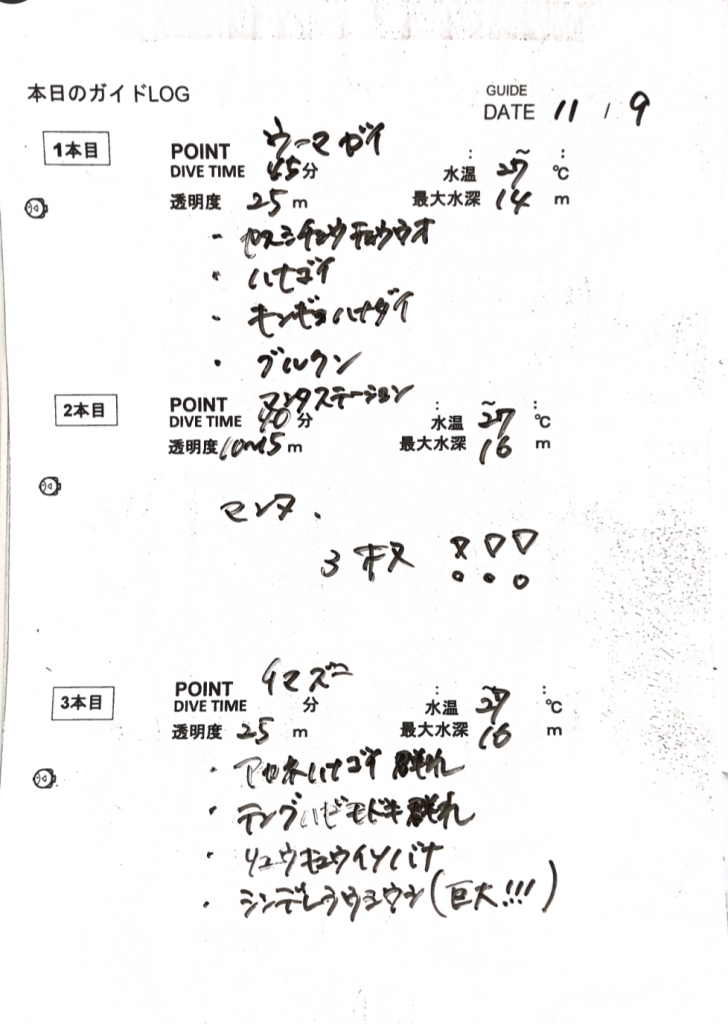 本日のガイドLOG
GUIDE
DATE 11 / 9
1本目
POINT ウーマガイ
DIVE TIME 45分
: ~ :
水温 27 ℃
透明度 25 m
最大水深 14 m
・ヤスジチョウチョウウオ
・ハナゴイ
・キンギョハナダイ
・グルクン
2本目
POINT マンタステーション
DIVE TIME 40分
: ~ :
水温 27 ℃
透明度 10〜15 m
最大水深 16 m
マンタ.
3 キス !!!
3本目
POINT
DIVE TIME 分
: ~ :
水温 27 ℃
透明度 25 m
最大水深 16 m
・アカネハナゴイ 群れ
・テングハギモドキ群れ
・リュウキュウイソバナ
・シンデレラウミウシ(巨大!!!)